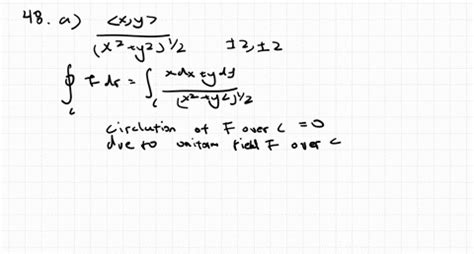 48. a) <x,y> / (x² + y²)^1/2   ±2, ±2
∮_c F dr = ∫_c xdx + ydy / (x² + y²)^1/2
circlution of F over C = 0
due to unitom field F over C